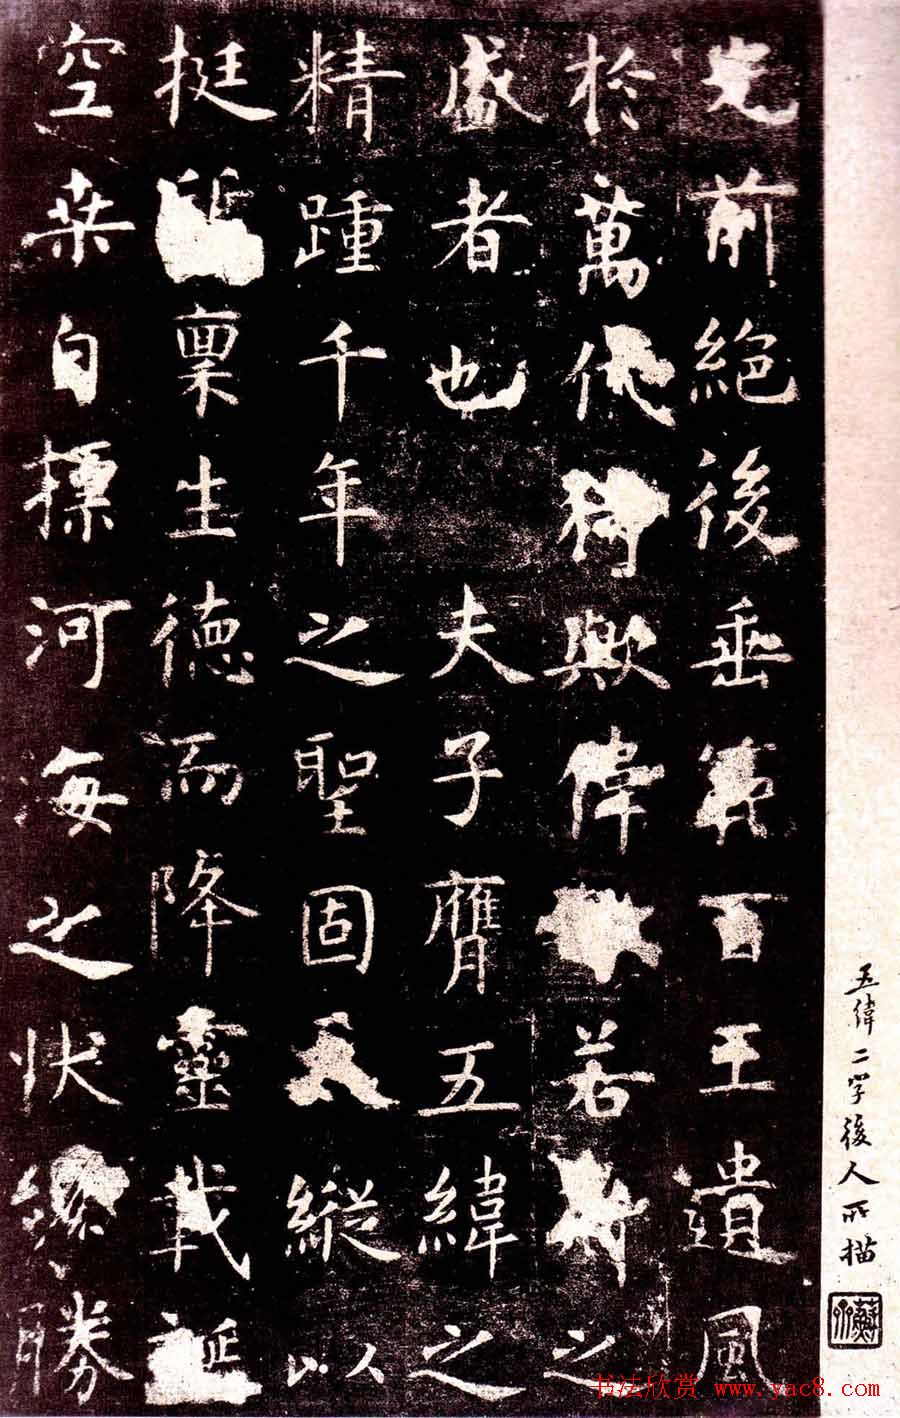 光前絕後垂百王遺風
於萬代猗歟偉若之
盛者也夫子膺五緯之
精踵千年之聖固天縱以
挺稟生德而降靈載誕
空桑自標河海之狀纔勝
五緯二字後人所描
书法欣赏 www.yac8.com